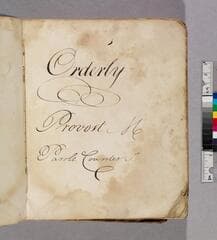 Orderly
Provost M
Parole Counter